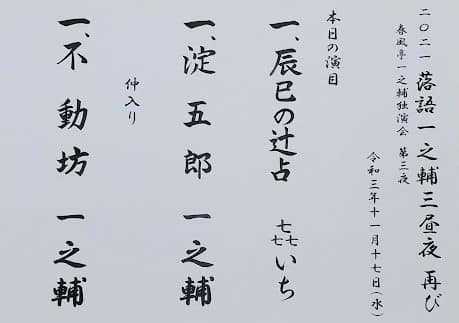 二〇二一 落語一之輔三昼夜 再び
春風亭一之輔独演会 第三夜
令和三年十一月十七日(水)
本日の演目
一、辰巳の辻占 㐂いち
一、淀五郎 一之輔
仲入り
一、不動坊 一之輔